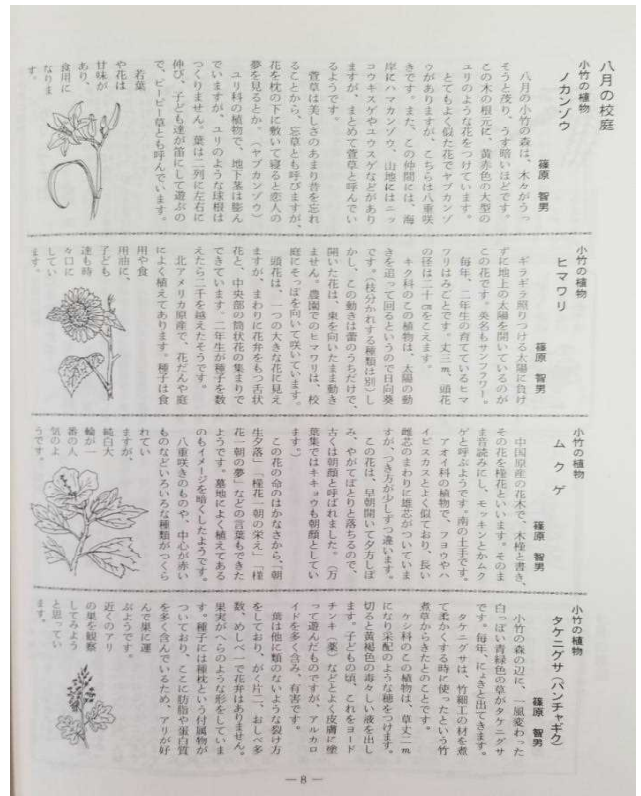 八月の校庭
小竹の植物
ノカンゾウ
篠原 智男
八月の小竹の森は、木々がうっ
そうと茂り、うす暗いほどです。
この木の根元に、黄赤色の大型の
ユリのような花をつけています。
とてもよく似た花でヤブカンゾ
ウがありますが、こちらは八重咲
きです。また、この仲間には、海
岸にハマカンゾウ、山地にはニッ
コウキスゲやユウスゲなどがあり
ますが、まとめて萱草と呼んでい
るようです。
萱草は美しさのあまり昔を忘れ
ることから、忘草とも呼びますが、
花を枕の下に敷いて寝ると恋人の
夢を見るとか。(ヤブカンゾウ)
ユリ科の植物で、地下茎は膨ん
でいますが、ユリのような球根は
つくりません。葉は二列に左右に
伸び、子ども達が笛にして遊ぶの
で、ピーピー草とも呼んでいます。
若葉
や花は
甘味が
あり、
食用に
なりま
す。
小竹の植物
ヒマワリ
篠原 智男
ギラギラ照りつける太陽に負け
ずに地上の太陽を開いているのが
この花です。英名もサンフラワー。
毎年、二年生の育てているヒマ
ワリはみごとです。丈三m、頭花
の径は二十㎝をこえます。
キク科のこの植物は、太陽の動
きを追って回るというので日向葵
です。(枝分かれする種類は別)し
かし、この動きは蕾のうちだけで、
開いた花は、東を向いたまま動き
ません。農園でのヒマワリは、校
庭にそっぽを向いて咲いています。
頭花は、一つの大きな花に見え
ますが、まわりに花弁をもつ舌状
花と、中央部の筒状花の集まりで
できています。二年生が種子を数
えたら二千を越えたそうです。
北アメリカ原産で、花だんや庭
によく植えてあります。種子は食
用や食
用油に、
子ども
達も時
々口に
してい
ます。
小竹の植物
ムクゲ
篠原 智男
中国原産の花木で、木槿と書き、
その花を槿花といいます。そのま
ま音読みにし、モッキンとかムク
ゲと呼ぶようです。南の土手です。
アオイ科の植物で、フヨウやハ
イビスカスとよく似ており、長い
雌芯のまわりに雄芯がついていま
すが、つき方が少しずつ違います。
この花は、早朝開いて夕方しぼ
み、やがてぽとりと落ちるので、
古くは朝顔と呼ばれました。(万
葉集ではキキョウも朝顔としてい
ます。)
この花の命のはかなさから、「朝
生夕落」「槿花一朝の栄え」「槿
花一朝の夢」などの言葉もできた
ようです。墓地によく植えてある
のもイメージを暗くしたようです。
八重咲きのものや、中心が赤い
ものなどいろいろな種類がつくら
れてい
ますが、
純白大
輪が一
番の人
気のよ
うです。
小竹の植物
タケニグサ(パンチャギク)
篠原 智男
小竹の森の辺に、一風変わった
白っぽい青緑色の草がタケニグサ
です。毎年、にょきと出てきます。
タケニグサは、竹細工の材を煮
て柔かくする時に使ったという竹
煮草からきたとのことです。
ケシ科のこの植物は、草丈二m
になり采配のような穂をつけます。
切ると黄褐色の毒々しい液を出し
ます。子どもの頃、これをヨード
チンキ(薬)などとよく皮膚に塗
って遊んだものですが、アルカロ
イドを多く含み、有害です。
葉は他に類のないような裂け方
をしており、がく片二、おしべ多
数、めしべ一で花弁はありません。
果実がへらのような形をしていま
す。種子には種枕という付属物が
ついており、ここに肪脂や蛋白質
を多く含んでいるため、アリが好
んで巣に運
ぶようです。
近くのアリ
の巣を観察
してみよう
と思ってい
ます。
— 8 —